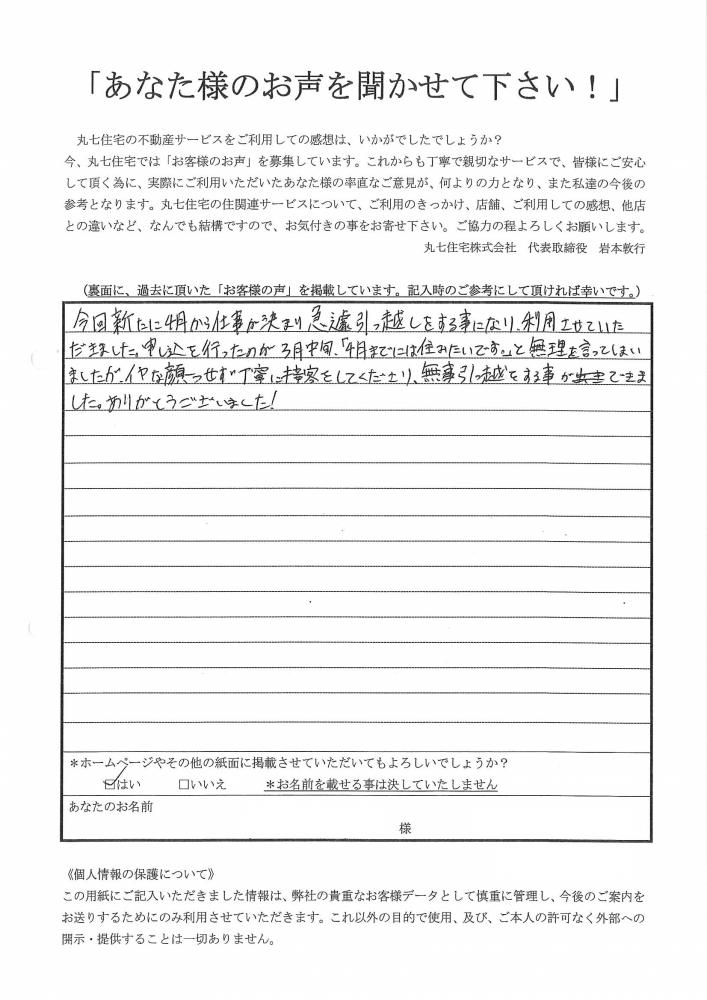 「あなた様のお声を聞かせて下さい！」
丸七住宅の不動産サービスをご利用しての感想は、いかがでしたでしょうか？
今、丸七住宅では「お客様のお声」を募集しています。これからも丁寧で親切なサービスで、皆様にご安心
して頂く為に、実際にご利用いただいたあなた様の率直なご意見が、何よりの力となり、また私達の今後の
参考となります。丸七住宅の住関連サービスについて、ご利用のきっかけ、店舗、ご利用しての感想、他店
との違いなど、なんでも結構ですので、お気付きの事をお寄せ下さい。ご協力の程よろしくお願いします。
丸七住宅株式会社　代表取締役　岩本敦行
（裏面に、過去に頂いた「お客様の声」を掲載しています。記入時のご参考にして頂ければ幸いです。）
今回新たに4月から仕事が決まり急遽引っ越しをする事になり、利用させていた
だきました。申し込を行ったのが3月中旬、「4月までには住みたいです。」と無理を言ってしまい
ましたが、イヤな顔一つせず丁寧に接客をしてくださり、無事引っ越をする事ができま
した。ありがとうございました！
＊ホームページやその他の紙面に掲載させていただいてもよろしいでしょうか？
☑はい　□いいえ　＊お名前を載せる事は決していたしません
あなたのお名前
様
《個人情報の保護について》
この用紙にご記入いただきました情報は、弊社の貴重なお客様データとして慎重に管理し、今後のご案内を
お送りするためにのみ利用させていただきます。これ以外の目的で使用、及び、ご本人の許可なく外部への
開示・提供することは一切ありません。